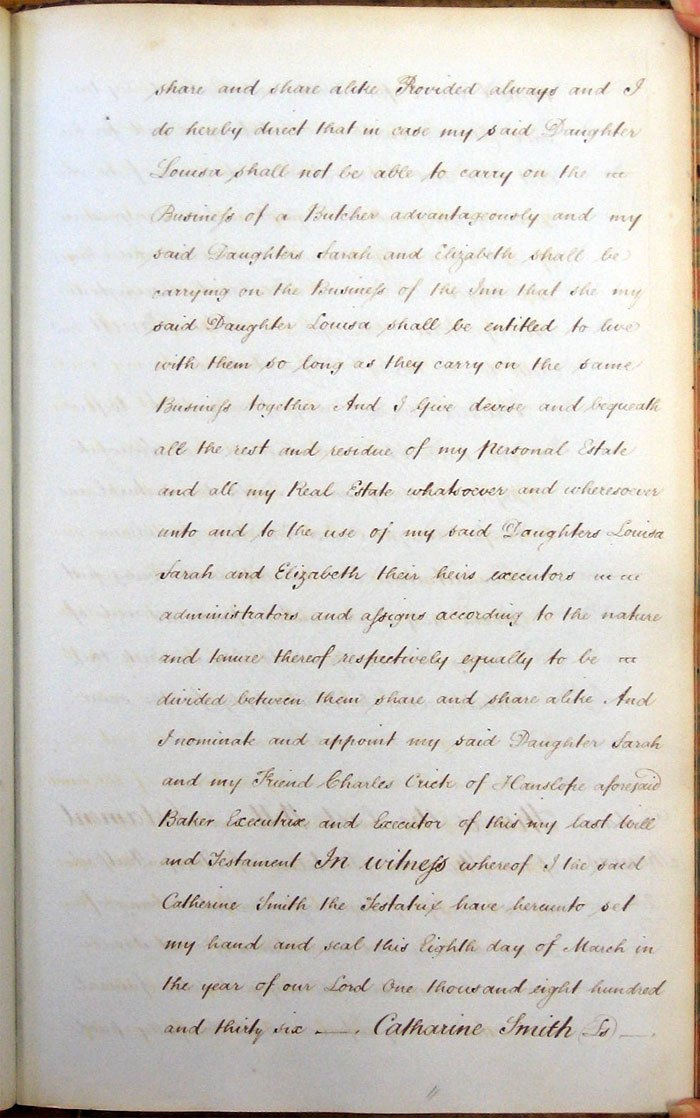 share and share alike Provided always and I
do hereby direct that in case my said Daughter
Louisa shall not be able to carry on the
Business of a Butcher advantageously and my
said Daughters Sarah and Elizabeth shall be
carrying on the Business of the Inn that she my
said Daughter Louisa shall be entitled to live
with them so long as they carry on the same
Business together And I Give devise and bequeath
all the rest and residue of my Personal Estate
and all my Real Estate whatsoever and wheresoever
unto and to the use of my said Daughters Louisa
Sarah and Elizabeth their heirs executors
administrators and assigns according to the nature
and tenure thereof respectively equally to be
divided between them share and share alike And
I nominate and appoint my said Daughter Sarah
and my Friend Charles Crick of Hanslope aforesaid
Baker Executrix and Executor of this my last Will
and Testament In witness whereof I the said
Catherine Smith the Testatrix have hereunto set
my hand and seal this Eighth day of March in
the year of our Lord One thousand eight hundred
and thirty six —. Catharine Smith (Ls) —